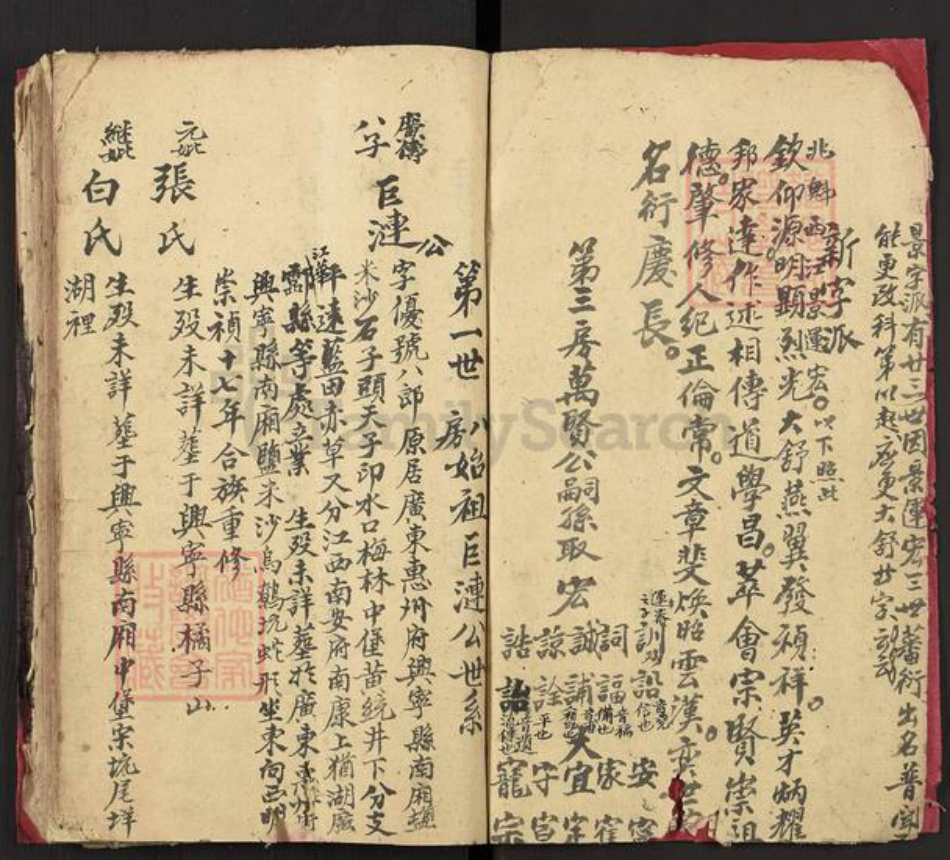 景字派有廿三世因景運宏三世蕃衍出名普字
能更改科第以起底更大舒廿字
新字派
兆 西江景運宏。以下照此
欽仰源明顯烈光大舒燕翼發禎祥。英才炳耀
邦家達作述相傳道學昌。萃會宗賢崇祖
德。肇修人紀正倫常。文章斐煥昭雲漢。
名衍慶長。
第三房萬賢公嗣孫取宏
訓 詔 安
詞 諨 家
誠 誧 大 宜
諒 詮 守
誥 詒 寵 宗
第一世 八房始祖巨漣公世系
孚 巨漣公
字優號八郎原居廣東惠州府興寧縣南廂鹽
米沙石子頭天子印水口梅林中堡黃統井下分支
平遠藍田赤草又分江西南安府南康上猶湖廣
酃縣等處立業 生歿未詳塟於廣東惠州府
興寧縣南廂鹽米沙烏鶴坑蛇形坐東向西
崇禎十七年合族重修
元妣 張氏 生歿未詳塟于興寧縣橘子山
繼妣 白氏 生歿未詳塟于興寧縣南廂中堡宗坑尾坪
湖裡
FamilySearch